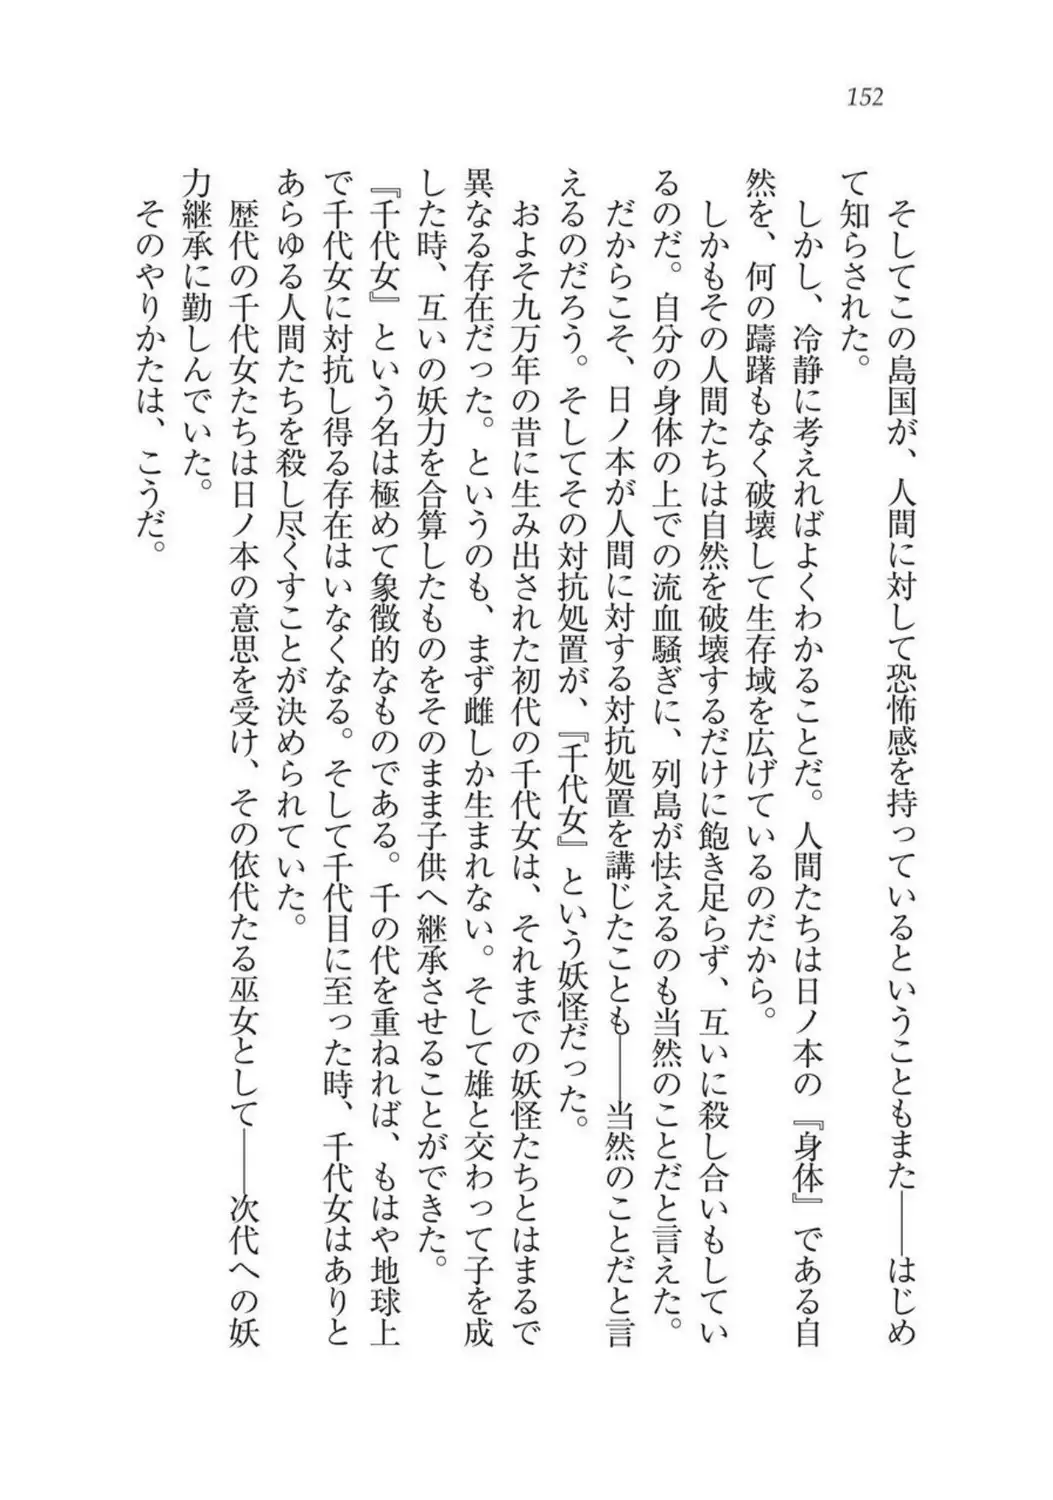 152
　そしてこの島国が、人間に対して恐怖感を持っているということもまた――はじめ
て知らされた。
　しかし、冷静に考えればよくわかることだ。人間たちは日ノ本の『身体』である自
然を、何の躊躇もなく破壊して生存域を広げているのだから。
　しかもその人間たちは自然を破壊するだけに飽き足らず、互いに殺し合いもしてい
るのだ。自分の身体の上での流血騒ぎに、列島が怯えるのも当然のことだと言えた。
　だからこそ、日ノ本が人間に対する対抗処置を講じたことも――当然のことだと言
えるのだろう。そしてその対抗処置が、『千代女』という妖怪だった。
　およそ九万年の昔に生み出された初代の千代女は、それまでの妖怪たちとはまるで
異なる存在だった。というのも、まず雌しか生まれない。そして雄と交わって子を成
した時、互いの妖力を合算したものをそのまま子供へ継承させることができた。
　『千代女』という名は極めて象徴的なものである。千の代を重ねれば、もはや地球上
で千代女に対抗し得る存在はいなくなる。そして千代目に至った時、千代女はありと
あらゆる人間たちを殺し尽くすことが決められていた。
　歴代の千代女たちは日ノ本の意思を受け、その依代たる巫女として――次代への妖
力継承に勤しんでいた。
　そのやりかたは、こうだ。